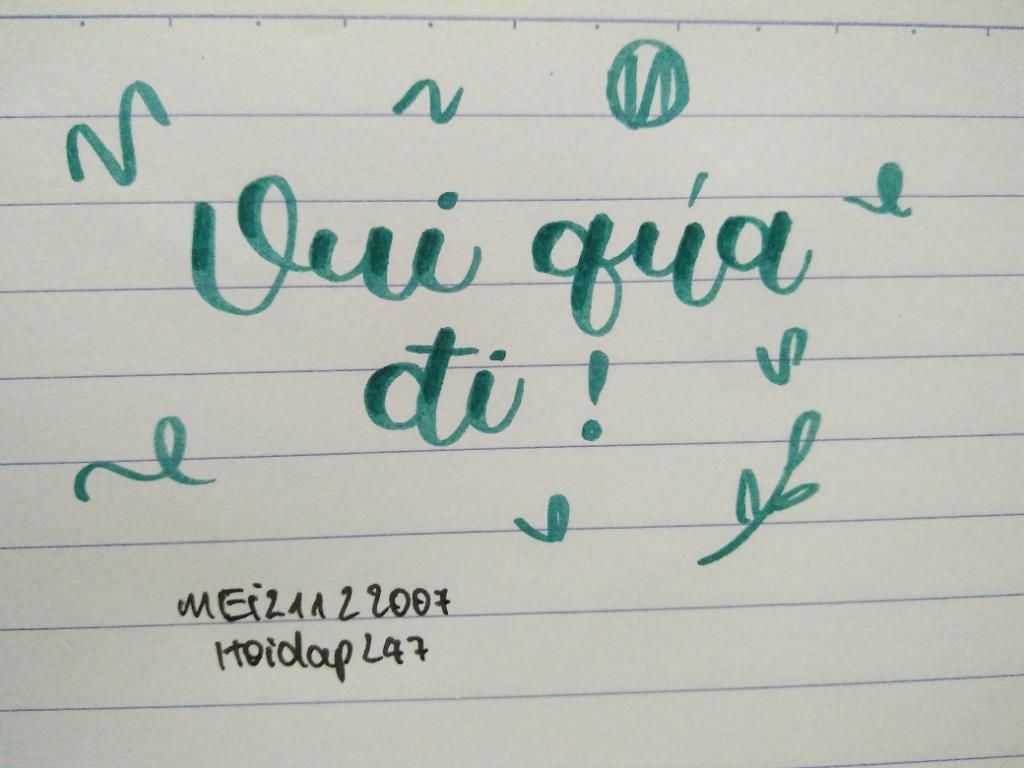 Vui qúa
đi !
MEi21122007
Hoidap247